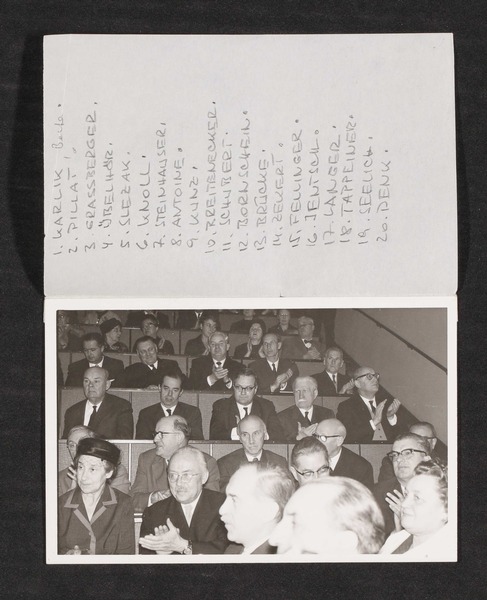 1. KARLIK, Berta.
2. PILLAT,
3. GRASSBERGER,
4. ÜBELHÖR,
5. SLEZAK.
6. KNOLL.
7. STEINHAUSER,
8. ANTOINE.
9. KUNZ.
10. KREITENECKER.
11. SCHUBERT.
12. BORNSCHEIN.
13. BRÜCKE.
14. ZEWERT.
15. FELLINGER.
16. JENTSCH.
17. LANGER.
18. TAPPEINER.
19. SEELICH.
20. DENK.